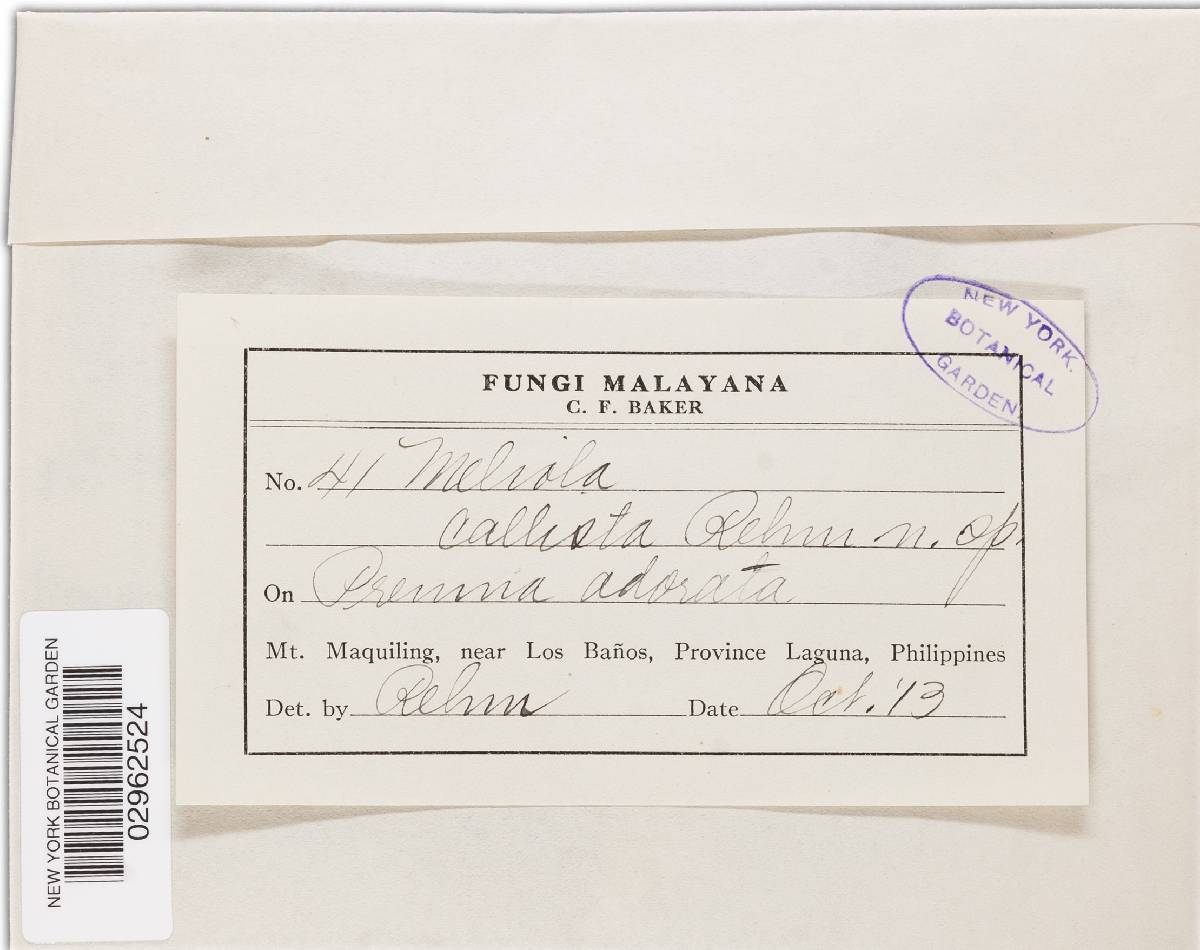 NEW YORK
BOTANICAL
GARDEN
FUNGI MALAYANA
C. F. BAKER
No. 41 Meliola
callista Rehm n. sp.
On Premna adorata
Mt. Maquiling, near Los Baños, Province Laguna, Philippines
Det. by Rehm Date Oct. '13
NEW YORK BOTANICAL GARDEN
02962524